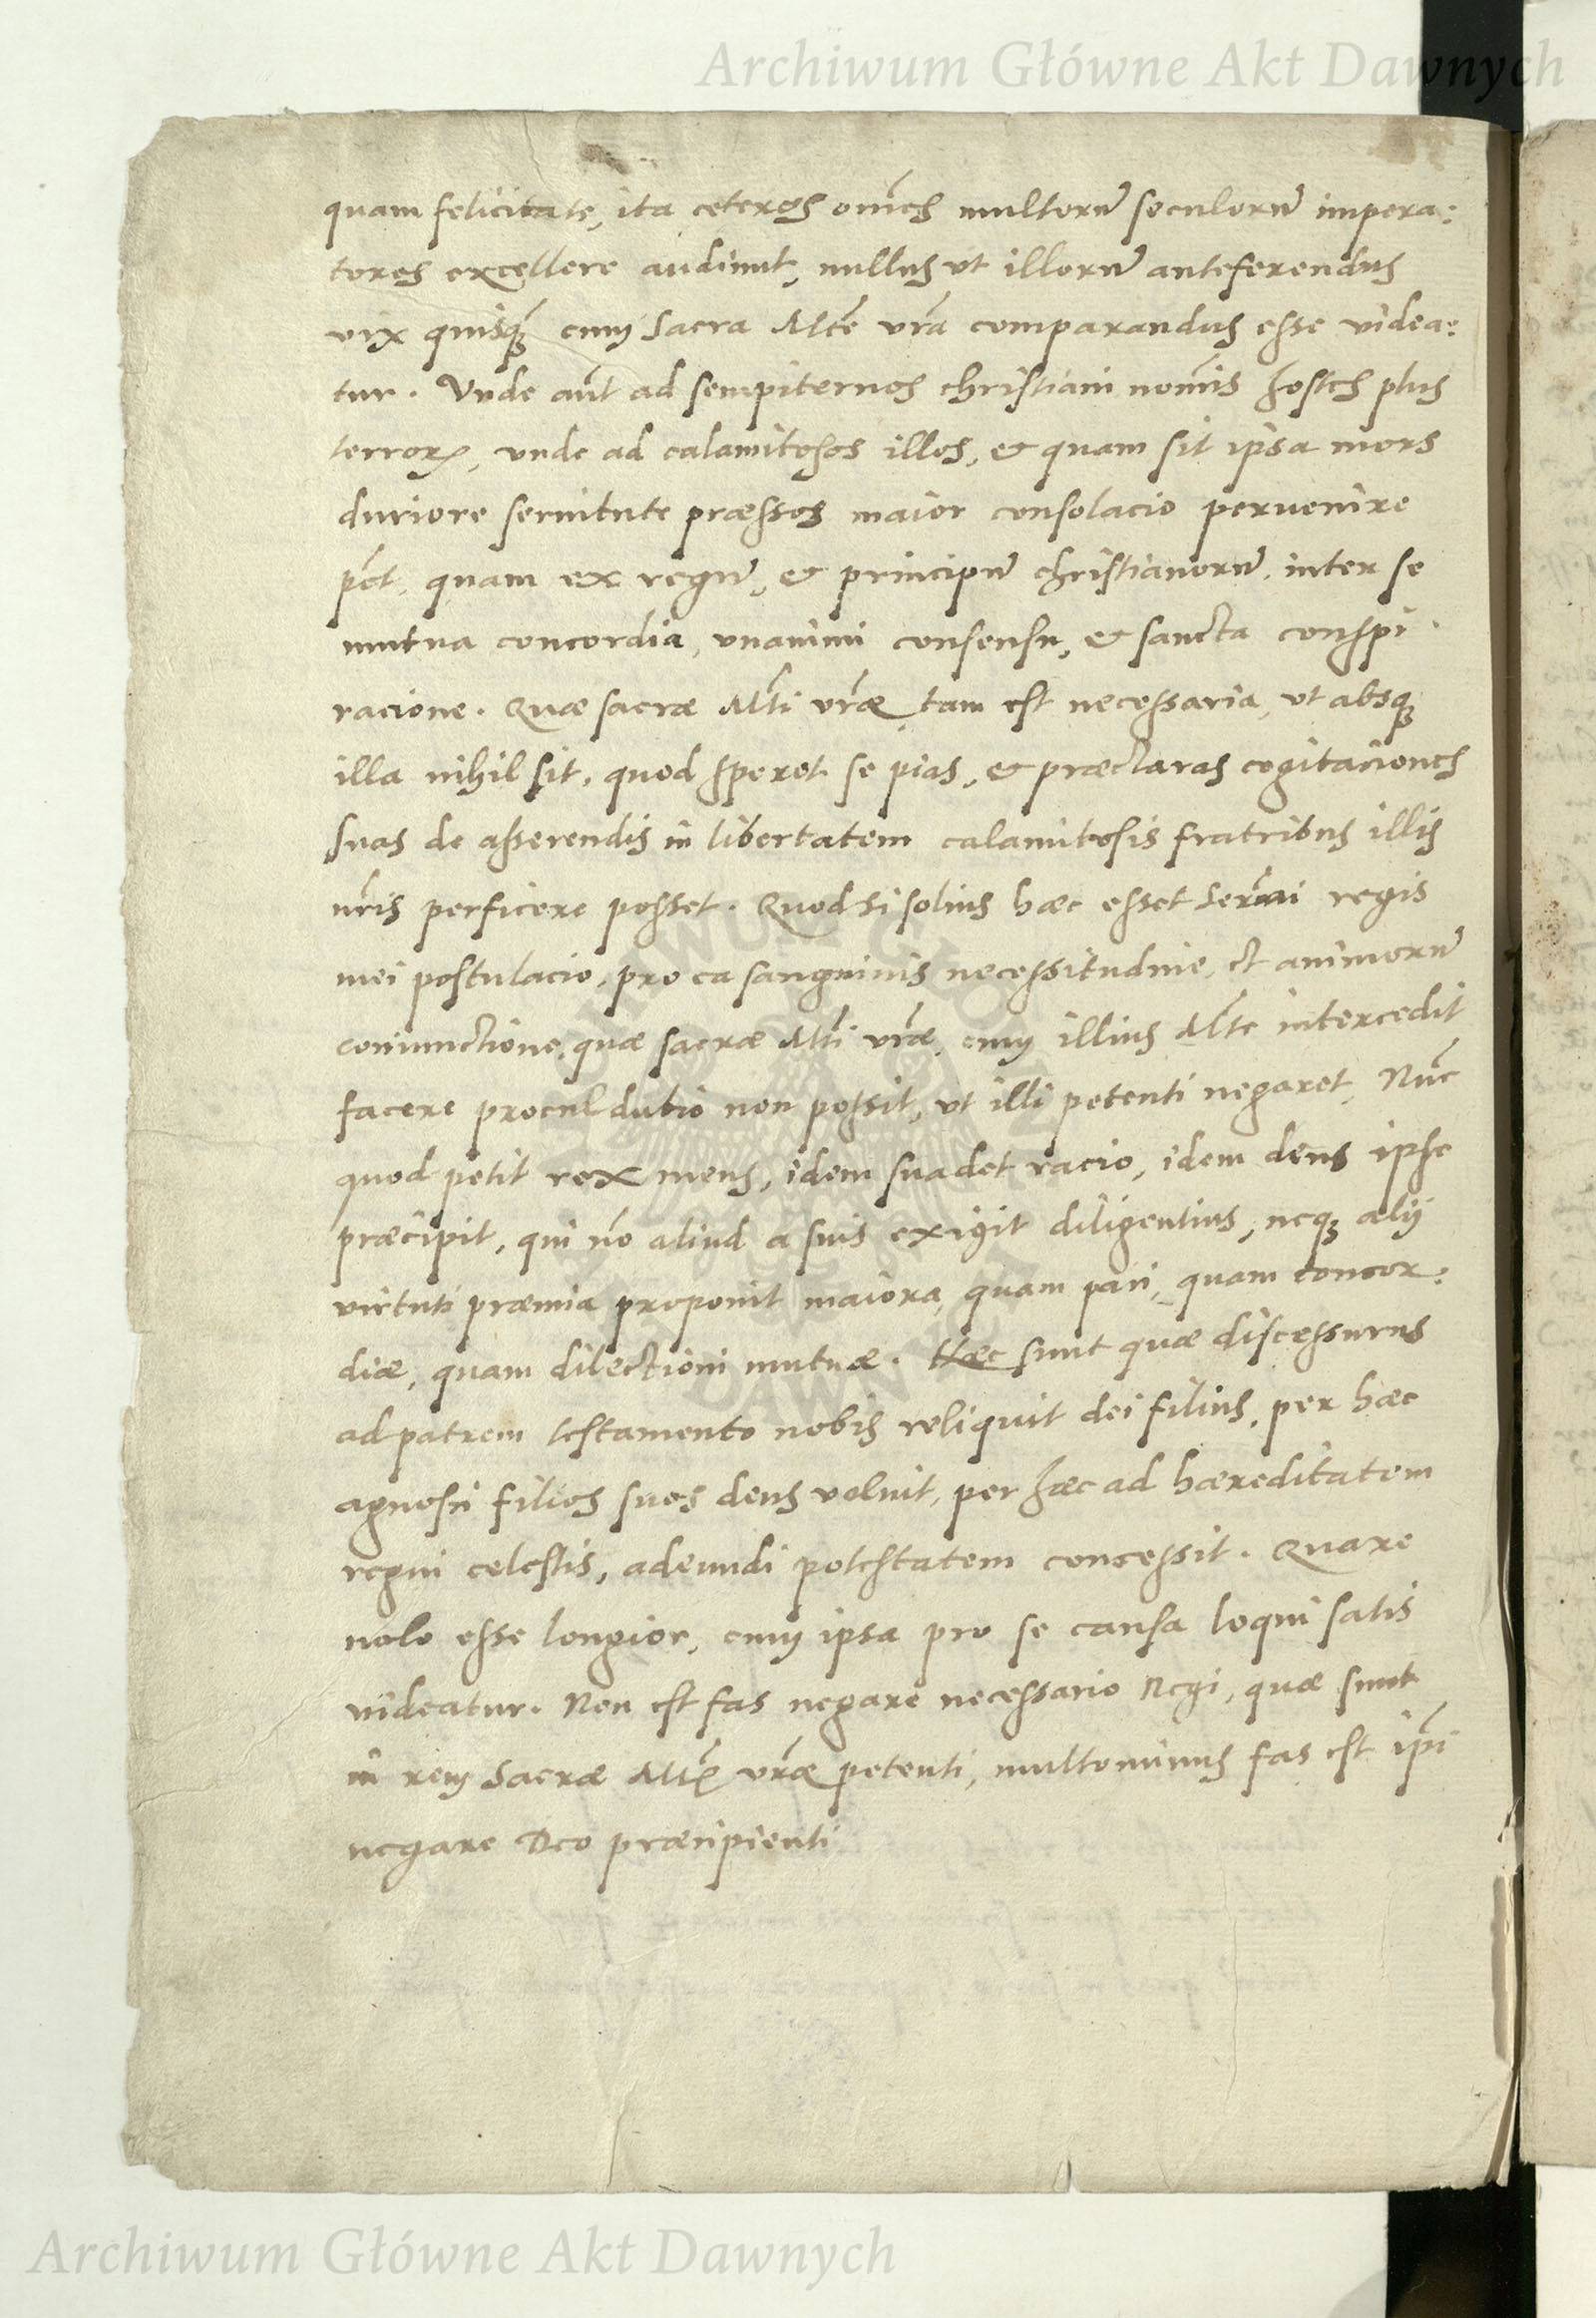 Archiwum Główne Akt Dawnych
quam felicitate, ita ceteros om̃es multorũ seculorũ impera:
tores excellere audiunt, nullus ut illorũ anteferendus
vix quisq̃ cum sacra Mte vr̃a comparandus esse videa:
tur. Vnde aũt ad sempiternos christiani nom̃is hostes plus
terroris, unde ad calamitosos illos, & quam sit ipsa mors
duriore seruitute præssos maior consolacio peruenire
põt, quam ex regũ, & principũ christianorũ, inter se
mutua concordia, unanimi consensu, & sancta conspi
racione. Quæ sacræ Mti vr̃æ tam est necessaria, ut absq;
illa nihil sit, quod speret se pias, & præclaras cogitaciones
suas de asserendis in libertatem calamitosis fratribus illis
nr̃is perficere posset. Quod si solius hæc esset Serm̃i regis
mei postulacio, pro ea sanguinis necessitudine, et animorũ
coniunctione, quæ sacræ Mti vr̃æ, cum illius Mte intercedit
facere procul dubio non possit, ut illi petenti negaret. Nũc
quod petit rex meus, idem suadet racio, idem deus ipse
præcipit, qui nõ aliud a suis exigit diligentius, neq; alij
virtuti præmia proponit maiora, quam paci, quam concor:
diæ, quam dilectioni mutuæ. Hæc sunt quæ discessurus
ad patrem testamento nobis reliquit dei filius, per hæc
agnosci filios suos deus voluit, per hæc ad hæreditatem
regni celestis, adeundi potestatem concessit. Quare
nolo esse longior, cum ipsa pro se causa loqui satis
videatur. Non est fas negare necessario Regi, quæ sunt
in rem Sacræ Mtis vr̃æ petenti, multominus fas est ip̃i
negare Deo præcipienti
Archiwum Główne Akt Dawnych